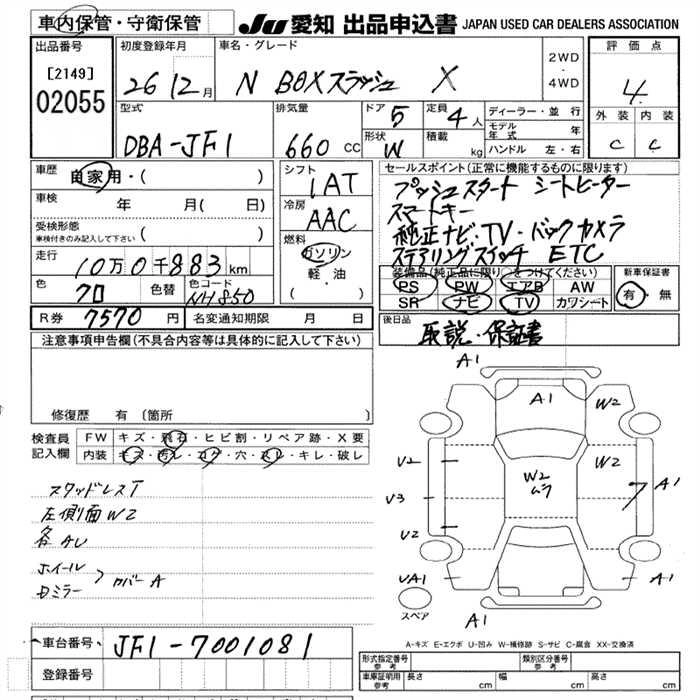 車内保管・守衛保管
JU 愛知 出品申込書 JAPAN USED CAR DEALERS ASSOCIATION
出品番号
[2149]
02055
初度登録年月
26 12月
車名・グレード
N BOXスラッシュ X
2WD
・
4WD
評価点
4
外装 内装
C C
型式
DBA-JF1
排気量
660 CC
ドア 5
形状 W
定員 4人
積載 kg
ディーラー・並行
モデル年式 年
ハンドル 左・右
車歴
自家用・( )
車検 年 月( 日)
受検形態
車検付きのみ記入して下さい ( )
走行
10万0千883km
色 クロ
色替
色コード NH850
シフト
IAT
冷房
AAC
燃料
ガソリン
軽・油
( )
セールスポイント(正常に機能するものに限ります)
プッシュスタート シートヒーター
スマートキー
純正ナビ・TV・バックカメラ
ステアリングスイッチ ETC
装備品(純正品に限り○をつけてください)
PS PW エアB AW
SR ナビ TV カワシート
新車保証書
有・無
R券 7570 円 名変通知期限 月 日
後日品
取説・保証書
注意事項申告欄(不具合内容等は具体的に記入して下さい)
修復歴 有〔箇所 〕
検査員記入欄
FW キズ・飛石・ヒビ割・リペア跡・X要
内装 キズ・汚レ・コゲ・穴・スレ・キレ・破レ
スタッドレスT
左側面W2
各AU
ホイール
Dミラー
カバーA
A1
A1
W2
U2
W2
ムラ
W2
U3
A1
U2
UA1
A1
スペア
A1
A-キズ E-エクボ U-凹み W-補修跡 S-サビ C-腐食 XX-交換済
車台番号 JF1-7001081
登録番号
形式指定番号
参考
類別区分番号
参考
車庫証明用
参考
長さ cm 幅 cm 高さ cm